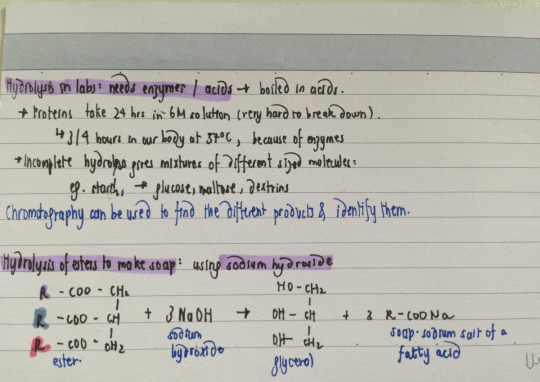 Hydrolysis in labs: needs enzymes / acids → boiled in acids.
→ Proteins take 24 hrs in 6M solution (very hard to break down).
↳ 3/4 hours in our body at 37°C, because of enzymes
→ Incomplete hydrolysis gives mixtures of different sized molecules:
eg. starch, → glucose, maltose, dextrins
Chromatography can be used to find the different products & identify them.
Hydrolysis of esters to make soap: using sodium hydroxide
R - COO - CH₂ HO - CH₂
R - COO - CH + 3 NaOH → OH - CH + 3 R-COONa
R - COO - CH₂ OH - CH₂
ester. sodium hydroxide glycerol soap-sodium salt of a fatty acid